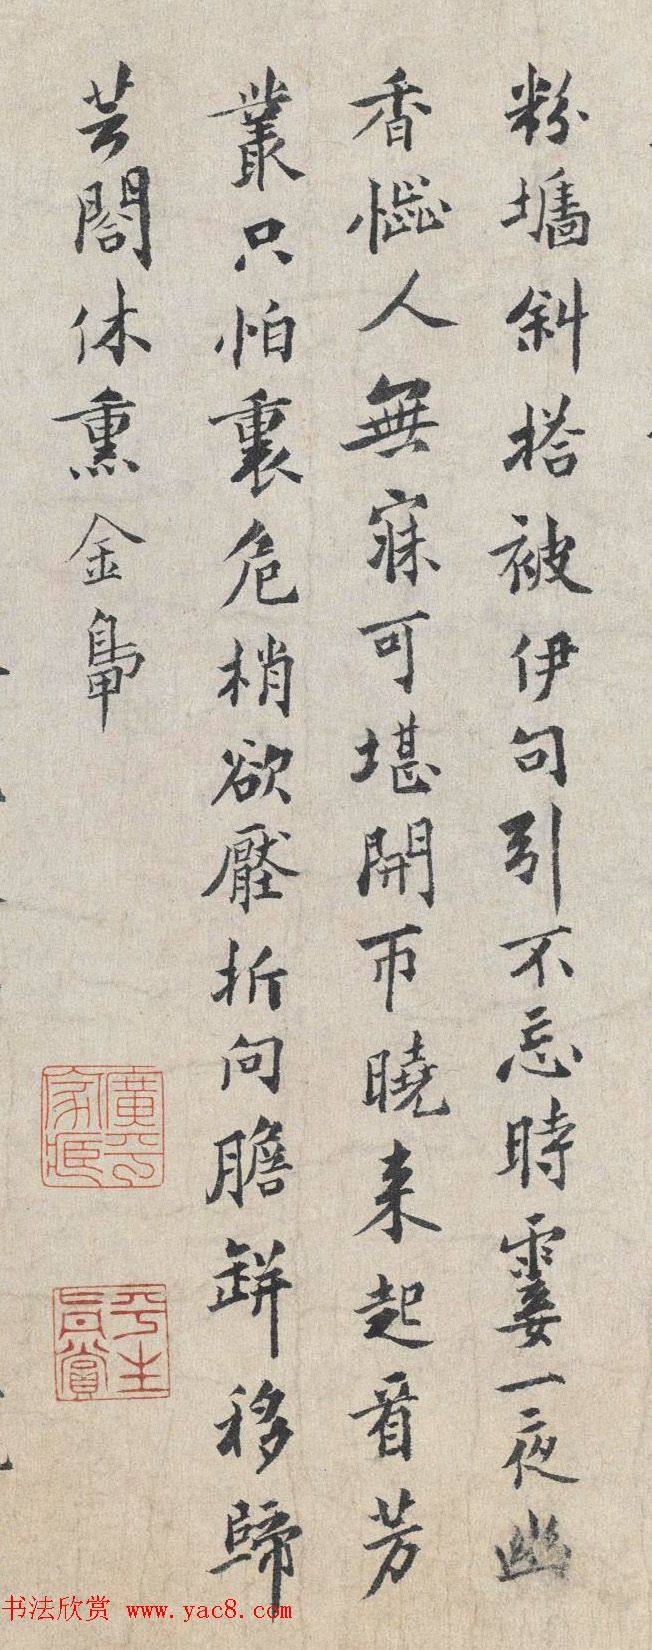 粉墻斜搭被伊勾引不忘時霎一夜幽
香惱人無寐可堪開帀曉来起看芳
叢只怕裏危梢欲壓折向膽缾移歸
芸閣休熏金鳧
廣平家藏
平生真賞
书法欣赏 www.yac8.com